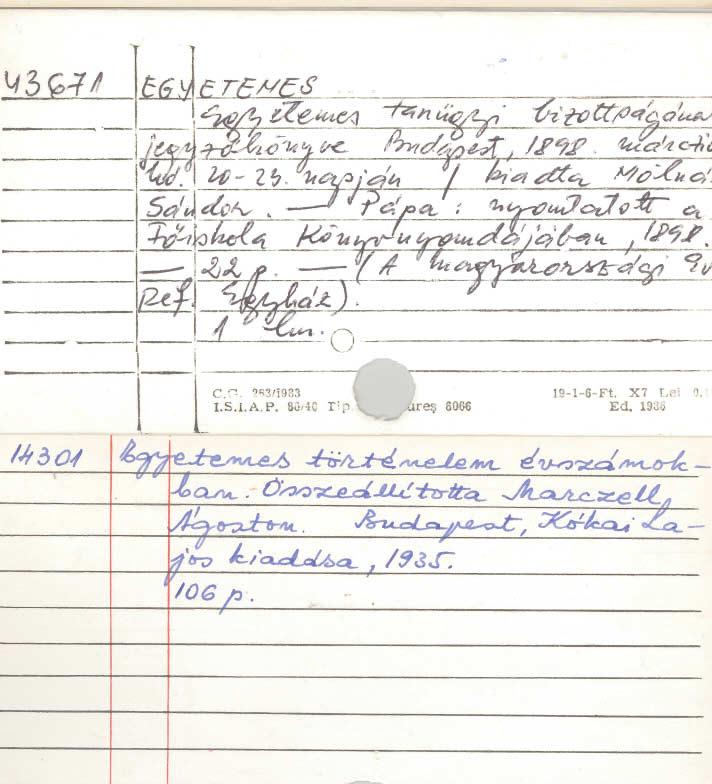 43671 EGYETEMES
Egyetemes tanügyi bizottságána
jegyzőkönyve Budapest, 1898. márciu
hó. 20-23. napján / kiadta Molná
Sándor. — Pápa : nyomtatott a
Főiskola Könyvnyomdájában, 1898.
— 22 p. — (A magyarországi Ev
ref. Egyház).
1 lm.
C.G. 263/1983 19-1-6-Ft. X7 Lei 0,1
I.S.I.A.P. 86/40 Tip. ureş 6066 Ed. 1986
14301 Egyetemes történelem évszámok-
ban. Összeállította Marczell
Ágoston. Budapest, Kókai La-
jos kiadása, 1935.
106 p.